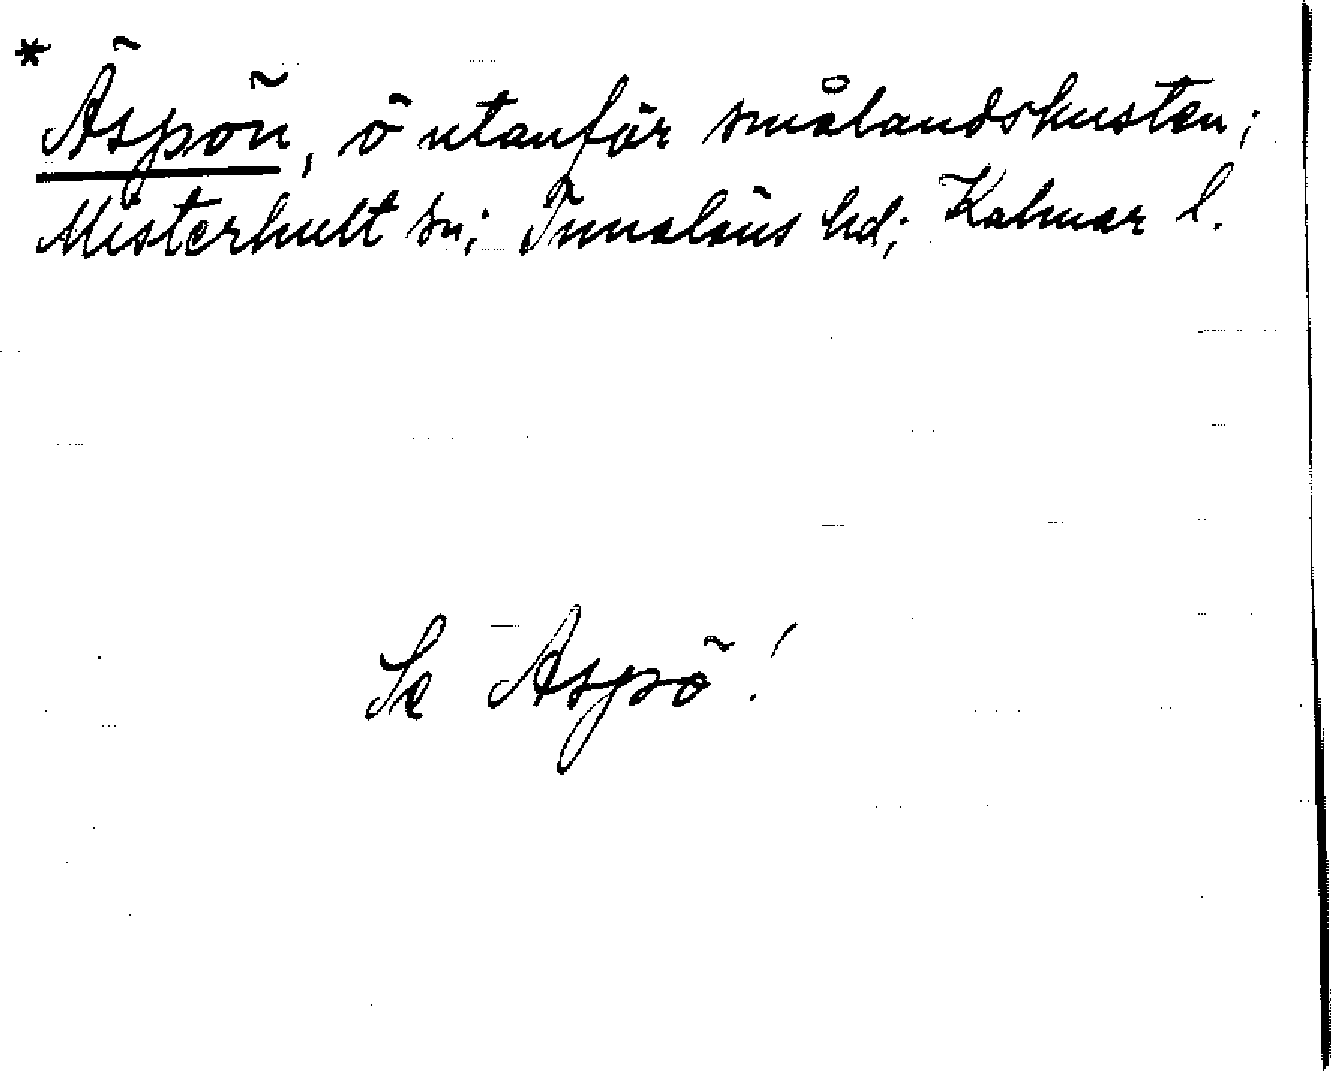 * Äspön, ö utanför smålandskusten;
Misterhult sn; Tunaläns hd; Kalmar l.
Se Aspö!